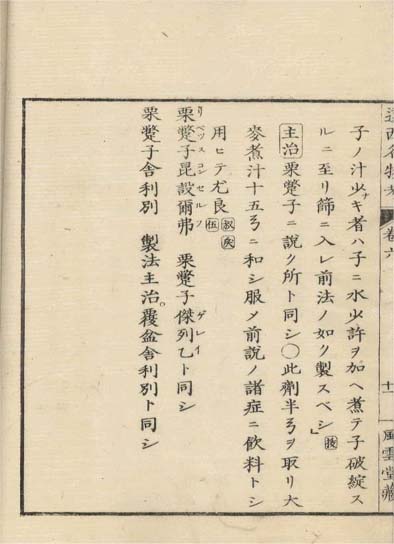 遠西名物考 卷六 十一 風雲堂藏
子ノ汁少ナキ者ハ子ニ水少許ヲ加ヘ煮テ子破綻ス
ルニ至リ篩ニ入レ前法ノ如ク製スベシ」
主治 栗子ニ說ク所ト同シ〇此劑半ヲ取リ大
麥煮汁十五ニ和シ服メ前說ノ諸症ニ飲料トシ
用ヒテ尤良 叔 矦 伍
栗子昆設爾弗 栗子傑列乙ト同シ
栗子舍利別 製法主治。覆盆舍利別ト同シ